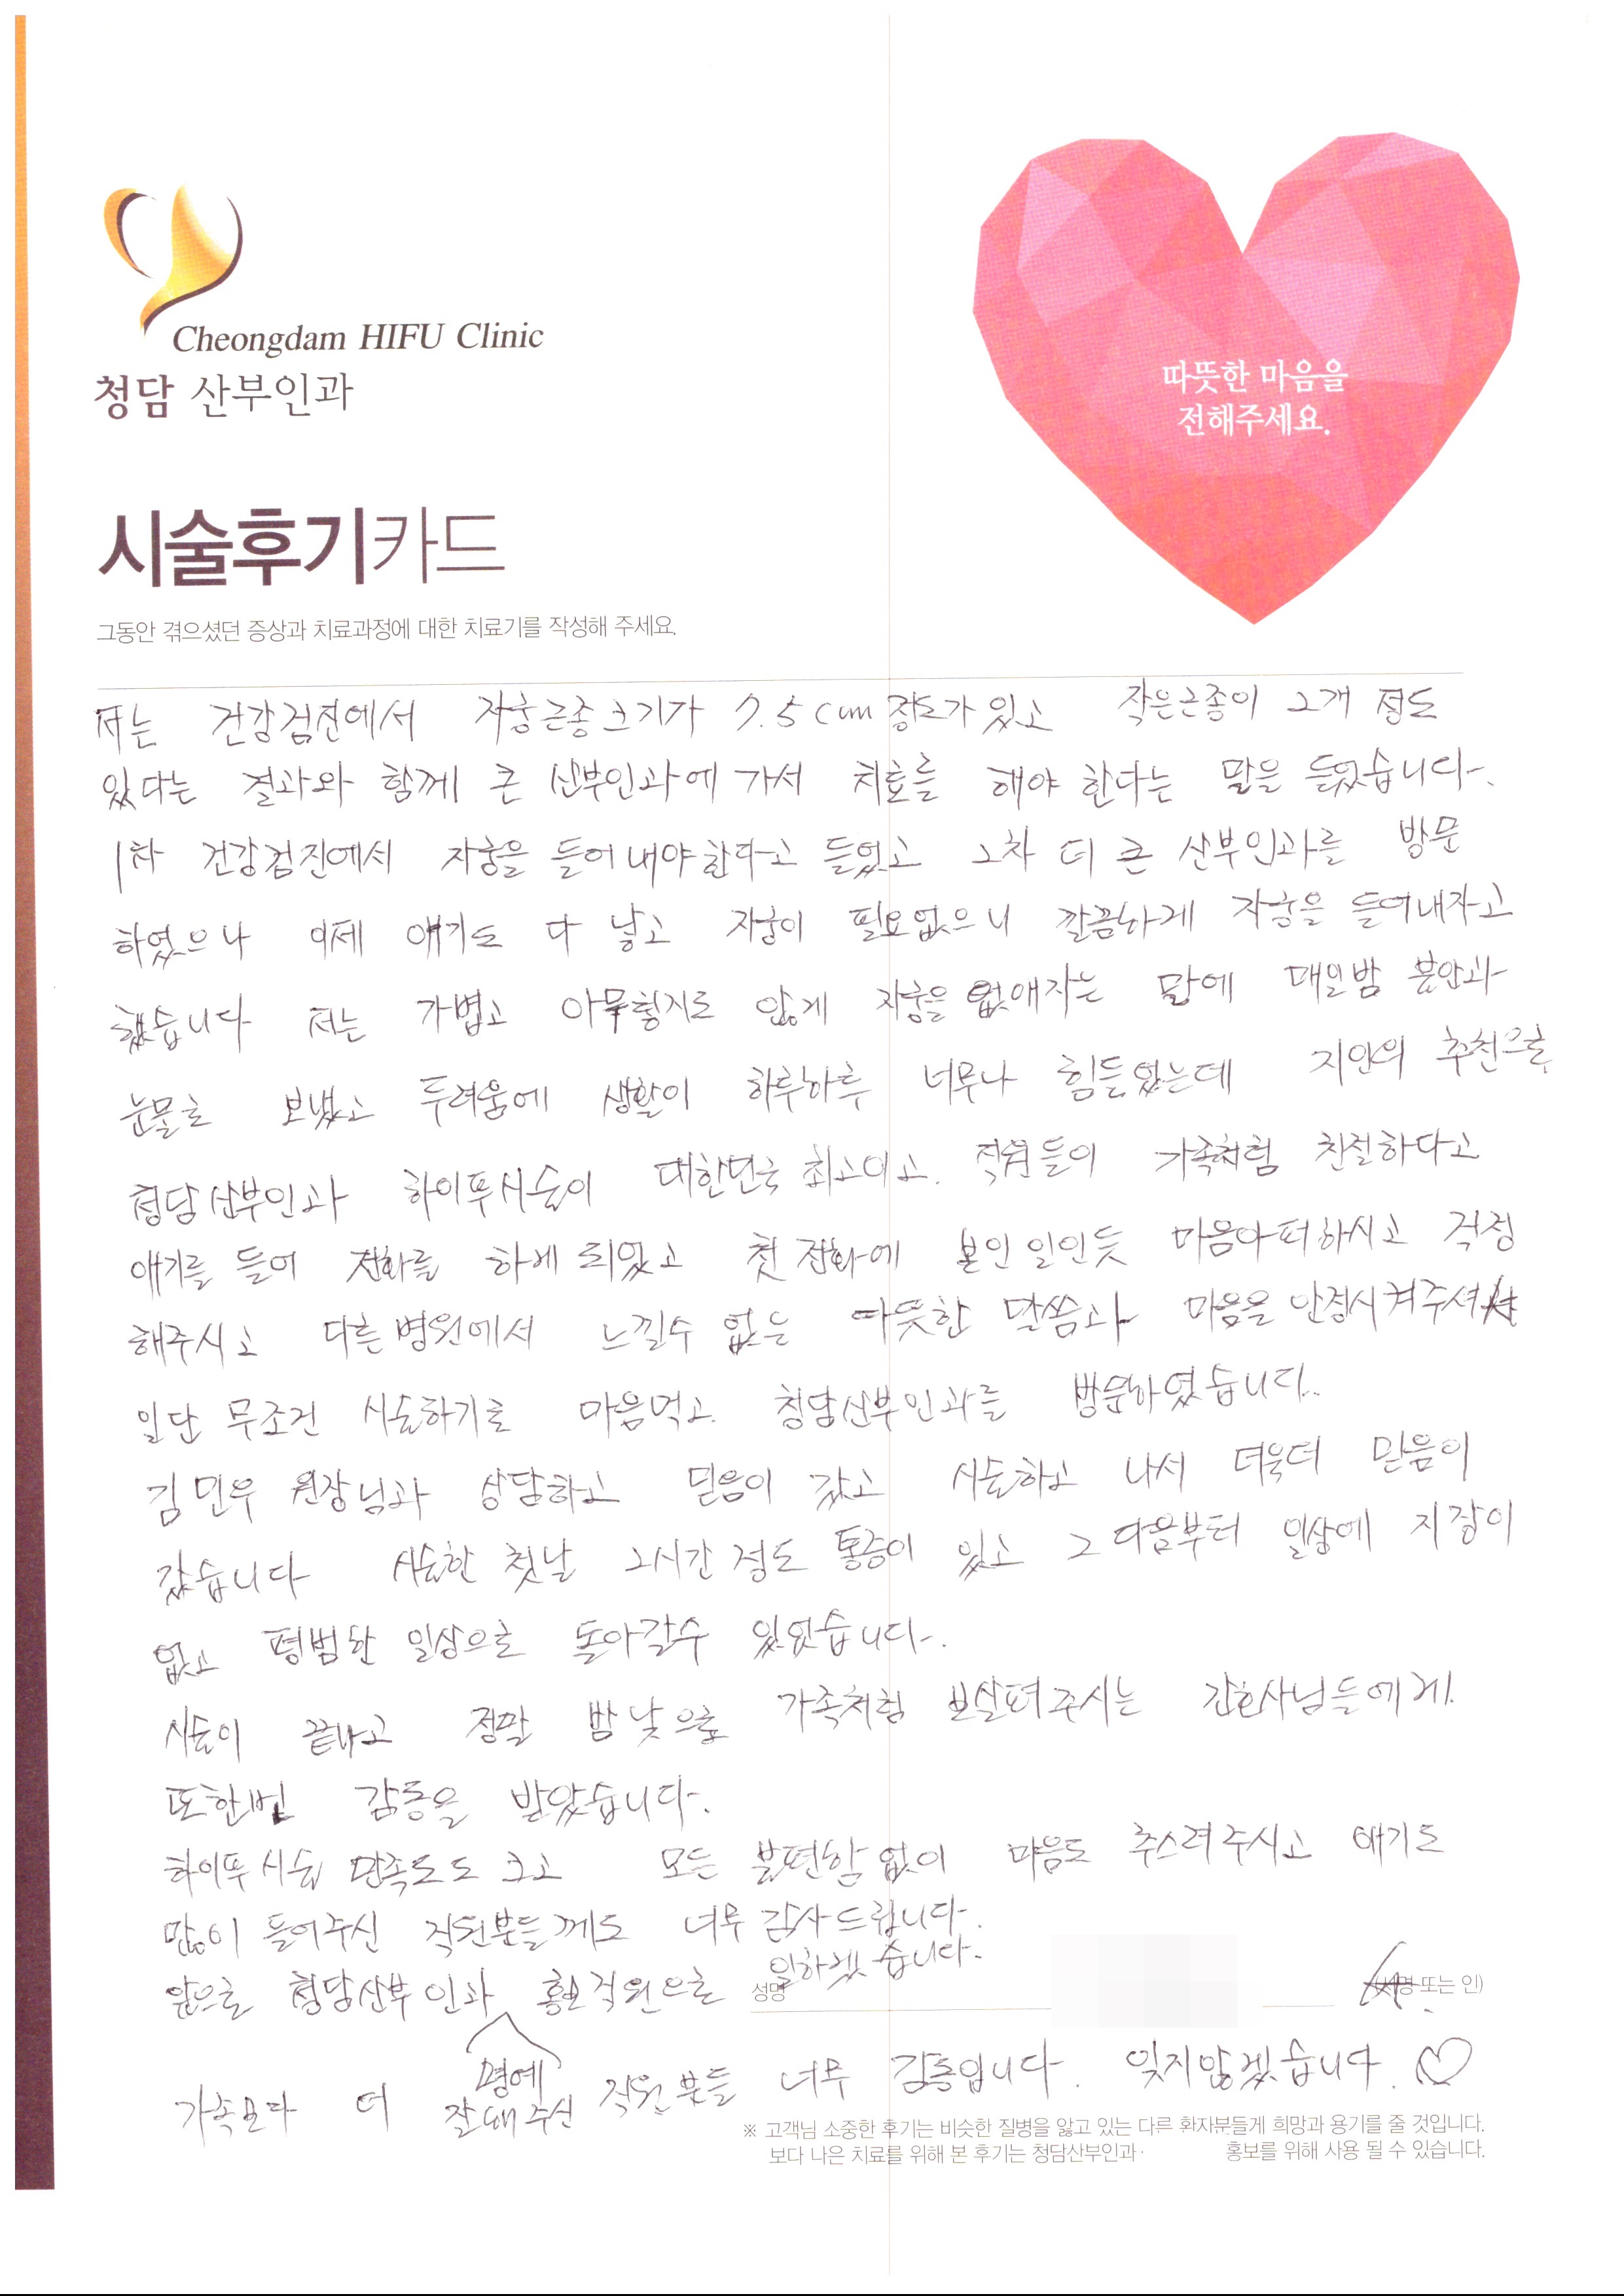 Cheongdam HIFU Clinic
청담 산부인과
따뜻한 마음을
전해주세요.
시술후기카드
그동안 겪으셨던 증상과 치료과정에 대한 치료기를 작성해 주세요.
저는 건강검진에서 자궁근종크기가 7.5cm 정도가 있고 작은근종이 2개 정도
있다는 결과와 함께 큰 산부인과에 가서 치료를 해야 한다는 말을 들었습니다.
1차 건강검진에서 자궁을 들어내야한다고 들었고 2차 더 큰 산부인과를 방문
하였으나 이제 애기도 다 낳고 자궁이 필요없으니 깔끔하게 자궁을 들어내자고
했습니다 저는 가볍고 아무렇지도 않게 자궁을 없애자는 말에 매일밤 불안과
눈물로 보냈고 두려움에 생활이 하루하루 너무나 힘들었는데 지인의 추천으로
청담산부인과 하이푸시술이 대한민국 최고이고. 직원들이 가족처럼 친절하다고
얘기를 들어 전화를 하게 되었고 첫 전화에 본인일인듯 마음아퍼하시고 걱정
해주시고 다른병원에서 느낄수 없는 따뜻한 말씀과 마음을 안정시켜주셔서
일단 무조건 시술하기로 마음먹고 청담산부인과를 방문하였습니다..
김민우 원장님과 상담하고 믿음이 갔고 시술하고 나서 더욱더 믿음이
갔습니다 시술한 첫날 2시간 정도 통증이 있고 그다음부터 일상에 지장이
없고 평범한 일상으로 돌아갈수 있었습니다.
시술이 끝나고 정말 밤낮으로 가족처럼 보살펴주시는 간호사님들에게.
또한번 감동을 받았습니다.
하이푸시술 만족도도 크고 모든 불편함없이 마음도 추스려주시고 얘기도
많이 들어주신 직원분들께도 너무 감사드립니다.
앞으로 청담산부인과 명예 홍보직원으로 일하겠습니다.
성명 또는 인)
가족보다 더 잘해주신 직원분들 너무 감동입니다. 잊지않겠습니다. ♡
※ 고객님 소중한 후기는 비슷한 질병을 앓고 있는 다른 환자분들게 희망과 용기를 줄 것입니다.
보다 나은 치료를 위해 본 후기는 청담산부인과· 홍보를 위해 사용 될 수 있습니다.